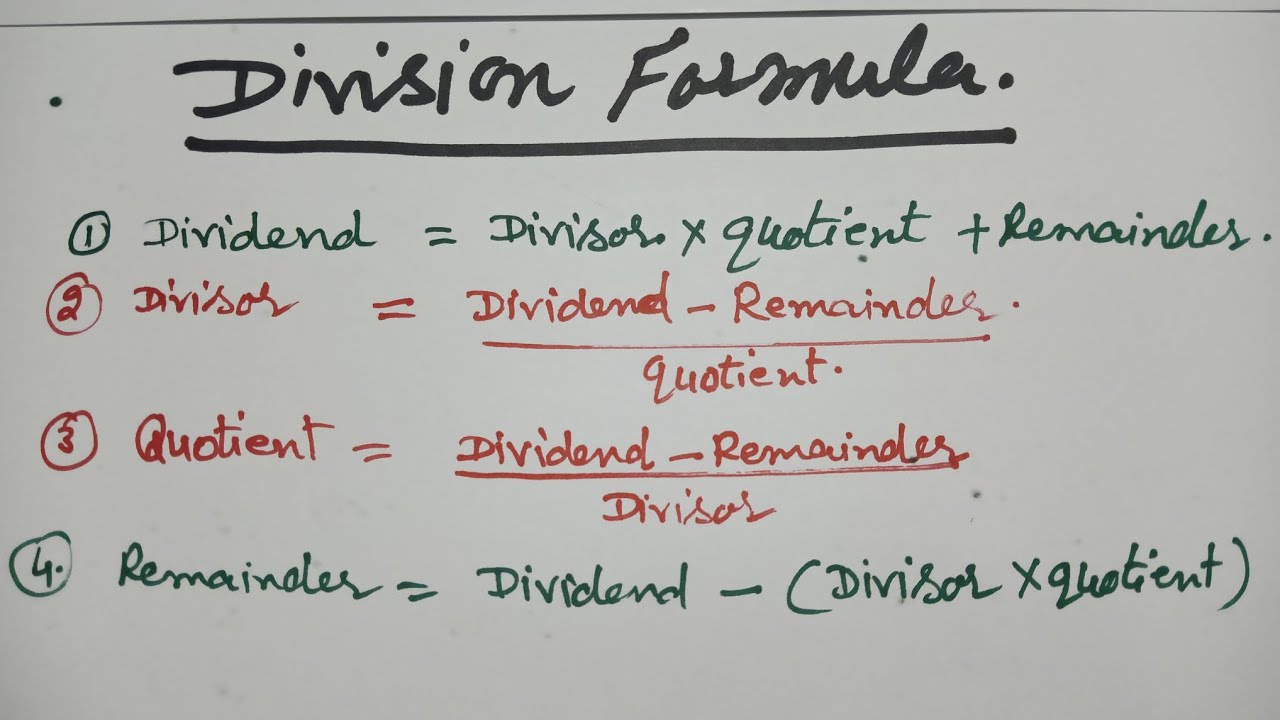 Division Formula.
① Dividend = Divisor × quotient + Remainder.
② Divisor = Dividend - Remainder.
quotient.
③ Quotient = Dividend - Remainder
Divisor
④. Remainder = Dividend - (Divisor × quotient)